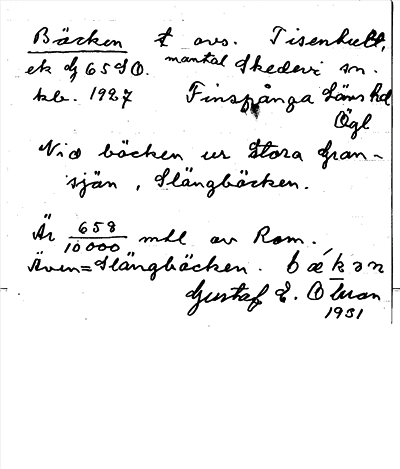 Bäcken t avs. Tisenhult,
ek bl 65 SO. mantal Skedevi sn.
kb. 1927 Finspånga läns hd
Ögl
Vid bäcken ur Stora Gran-
sjön, Slängbäcken.
Är 658/10000 mtl av Rom.
Även = Slängbäcken. bækən
Gustaf E. Oman
1931